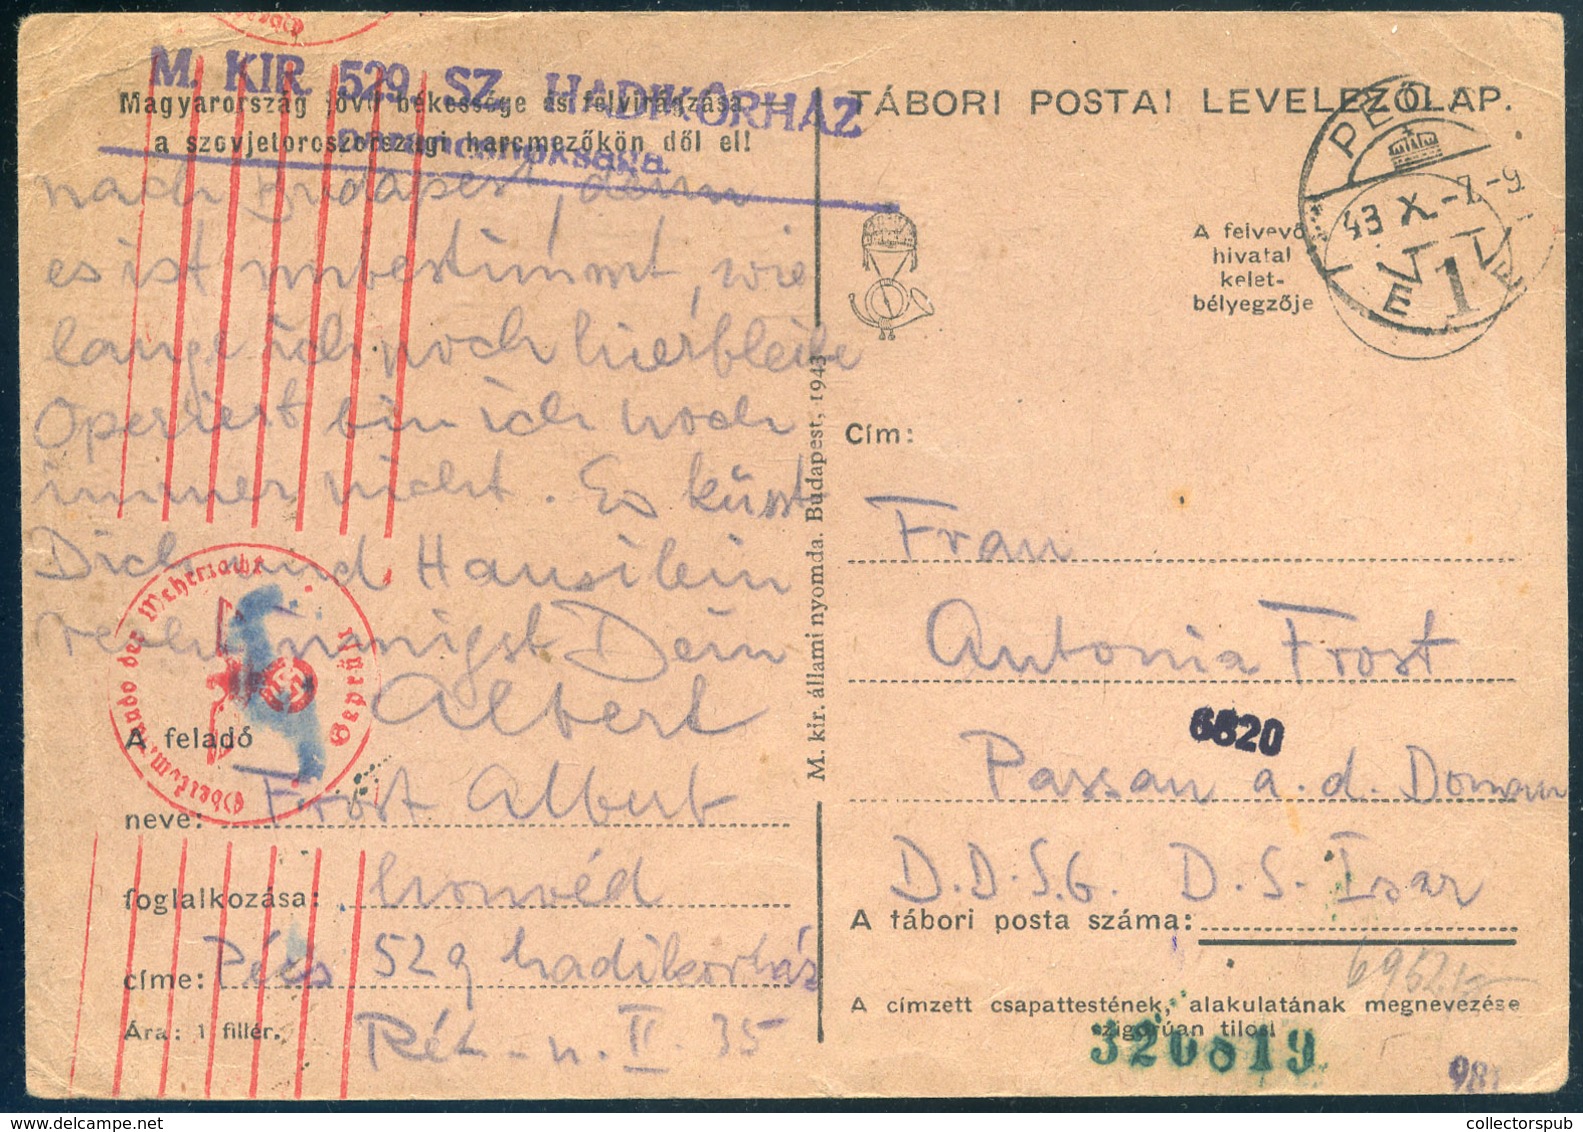 M. KIR. 529. SZ. HADIKÓRHÁZ
Magyarország jövő békessége és felvirágzása
a szovjetoroszországi harcmezőkön dől el!
parancsnoksága
nach Budapest, denn
es ist unbestimmt, wie
lange ich noch hierbleibe
Operiert bin ich noch
immer nicht. Es küsst
Dich und Hansilein
recht innigst Dein
Albert
Oberkommando der Wehrmacht
Geprüft
A feladó
neve: Frost Albert
foglalkozása: honvéd
címe: Pécs 529 hadikorház
Ára: 1 fillér. Rét-u. II. 35
M. kir. állami nyomda. Budapest, 1943
TÁBORI POSTAI LEVELEZŐLAP.
PÉCS
43 X.-7.-9
1
A felvevő
hivatal
kelet-
bélyegzője
Cím:
Frau
Antonia Frost
6820
Passau a. d. Donau
D.D.S.G. D.S. Isar
A tábori posta száma:
A címzett csapattestének, alakulatának megnevezése
szigorúan tilos!
320819
98
collectorspub